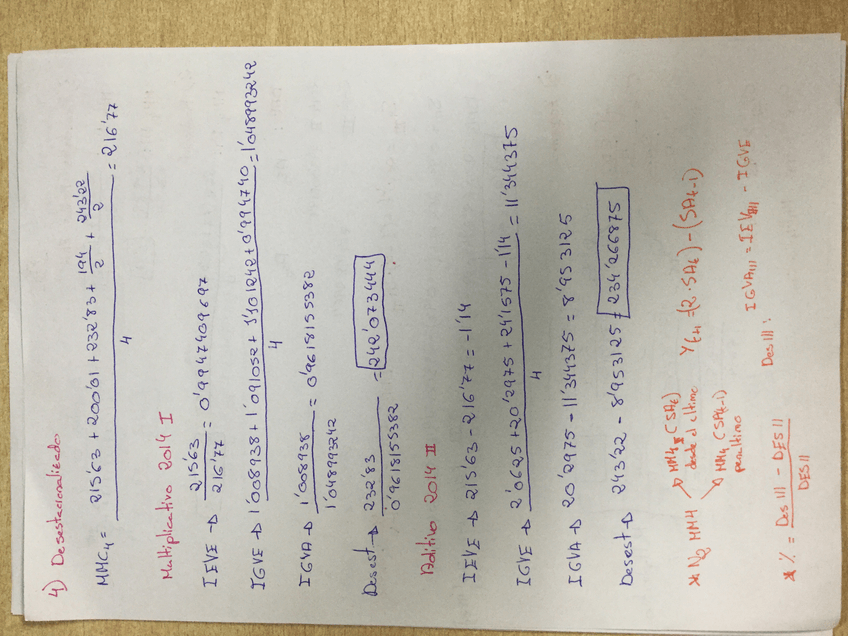 4) Desestacionalizado
MMC4 = 215'63 + 200'01 + 232'83 + 194/2 + 243'22/2 / 4 = 216'77
Multiplicativo 2014 I
IEVE → 215'63 / 216'77 = 0'9947409697
IGVE → 1'008938 + 1'091052 + 1'101242 + 0'994740 / 4 = 1'048993242
IGVA → 1'008938 / 1'048993242 = 0'9618155382
Desest → 232'83 / 0'9618155382 = 242'073444
Aditivo 2014 II
IEVE → 215'63 - 216'77 = -1'14
IGVE → 2'0625 + 20'2975 + 24'1575 - 1'14 / 4 = 11'344375
IGVA → 20'2975 - 11'344375 = 8'953125
Desest → 243'22 - 8'953125 = 234'266875
* N2 MM4
MM4 (SAt)
desde el último
MM4 (SAt-1)
penúltimo
Yt+1 = (2·SAt) - (SAt-1)
* % = Des III - DES II / DES II
Des III:
IGVA III = IEV III - IGVE